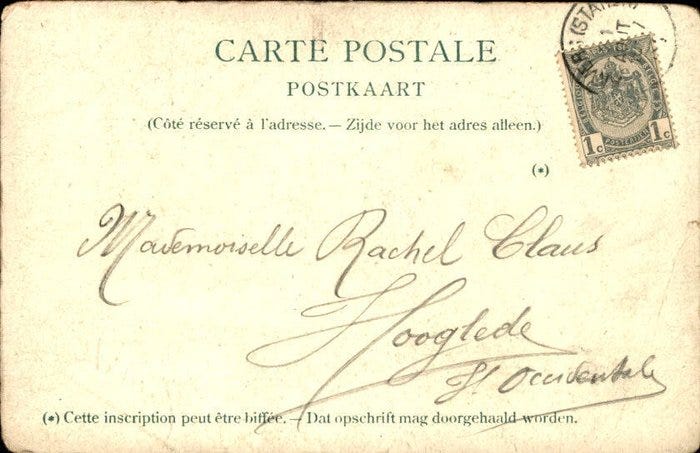 CARTE POSTALE
POSTKAART
(Côté réservé à l'adresse. — Zijde voor het adres alleen.)
(*)
1c 1c
Mademoiselle Rachel Claus
Hooglede
Fl Occidentale
(*) Cette inscription peut être biffée. — Dat opschrift mag doorgehaald worden.